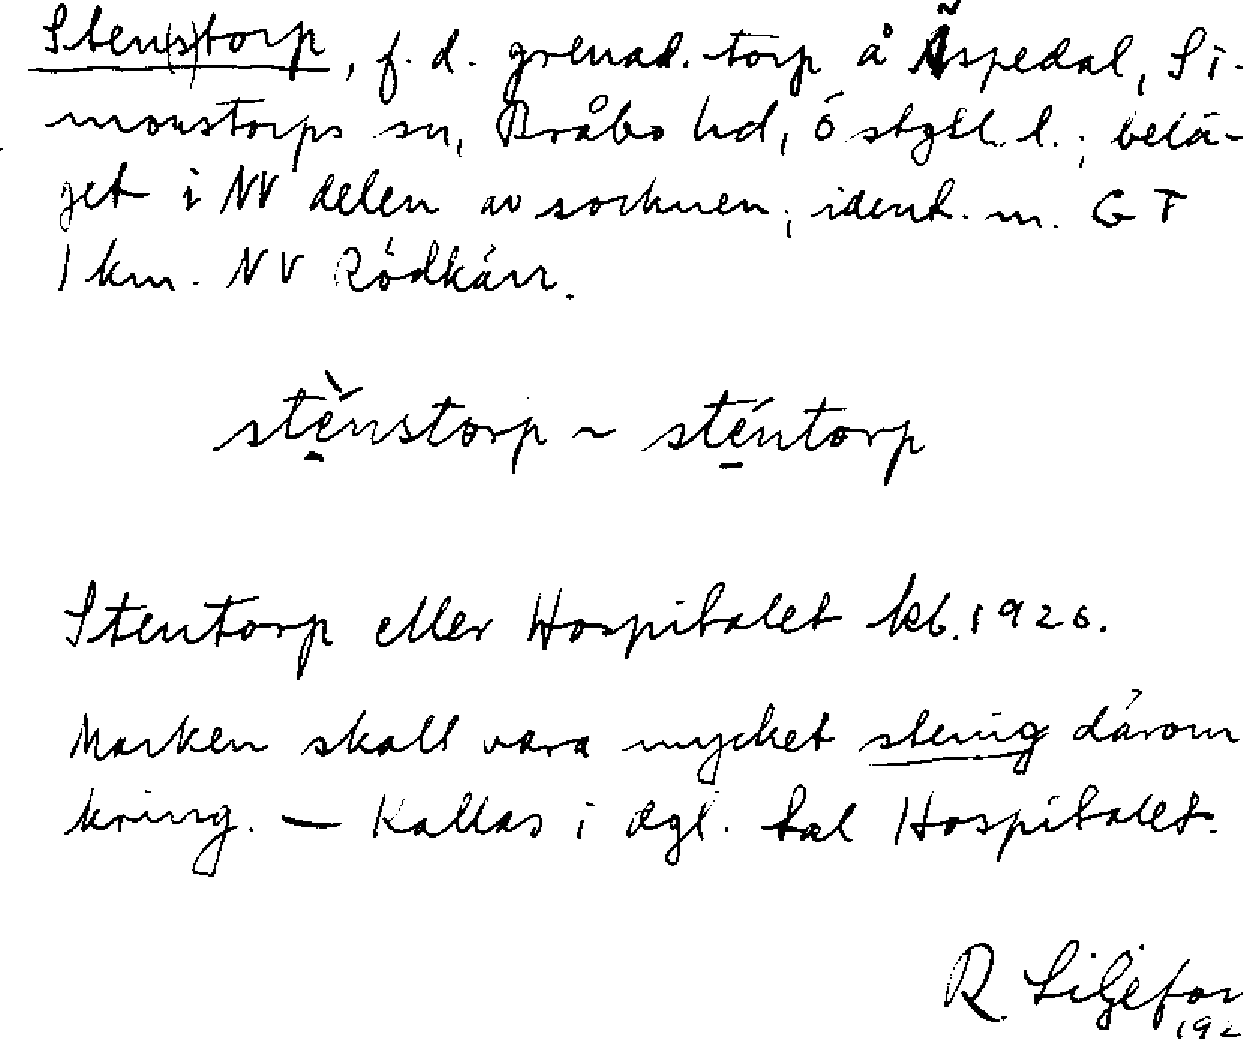 Sten(s)torp, f. d. grenad. torp å Äspedal, Si-
monstorps sn, Bråbo hd, Östgtl. l.; belä-
get i NV delen av socknen, ident. m. GT
1 km. NV Rödkärr.
stĕ̀nstorp ~ sténtorp
Stentorp eller Hospitalet kb. 1926.
Marken skall vara mycket stenig därom
kring. — Kallas i dgl. tal Hospitalet.
R. Liljefor
192